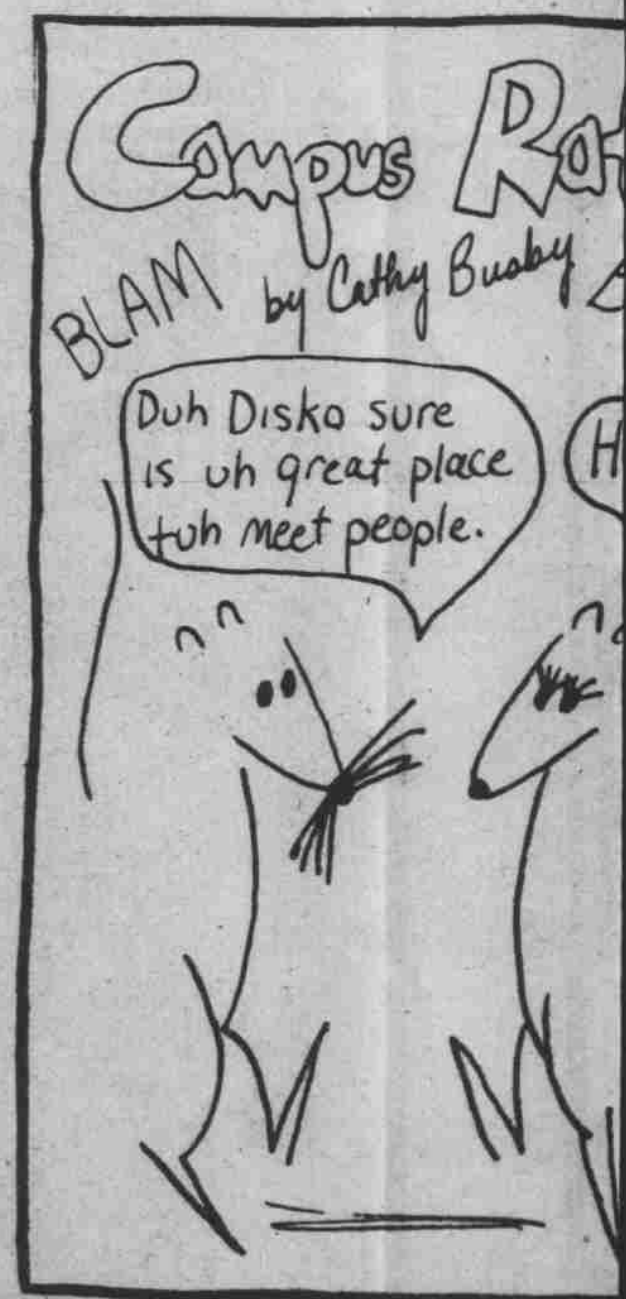 Campus Rat
BLAM
by Cathy Busby
Duh Disko sure
is uh great place
tuh meet people.
H